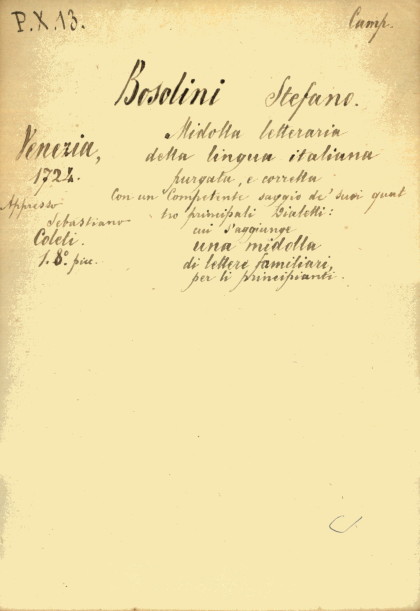 P.X.13.
Camp.
Bosolini Stefano.
Venezia,
1724.
Appresso
Sebastiano
Coleti.
1. 8º. picc.
Midolla letteraria
della lingua italiana
purgata, e corretta
Con un Competente saggio de' suoi quat
tro principali Dialetti:
cui s'aggiunge
una midolla
di lettere familiari,
per li principianti.